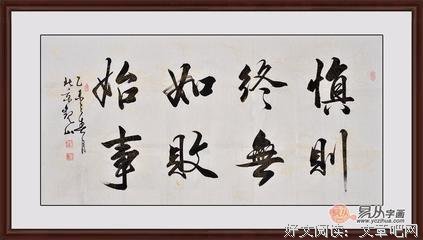 慎終如始
則無敗事
易从字画
www.yczihua.com
好文阅读：文章吧网